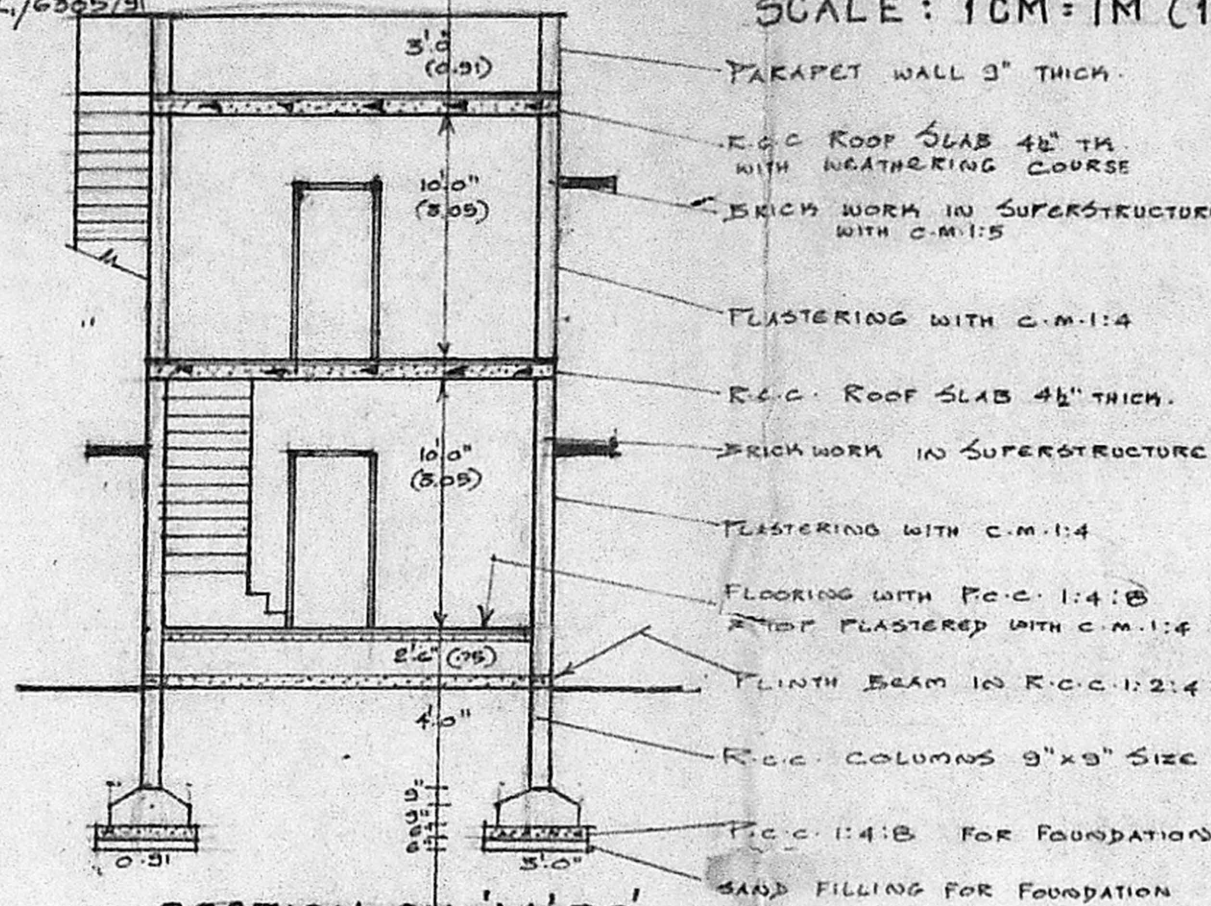 SCALE : 1CM = 1M (1
3'.0"
(0.91)
PARAPET WALL 9" THICK.
R.C.C ROOF SLAB 4½" TK.
WITH WEATHERING COURSE
10'.0"
(3.05)
BRICK WORK IN SUPERSTRUCTURE
WITH C.M.1:5
PLASTERING WITH C.M.1:4
R.C.C. ROOF SLAB 4½" THICK.
10'.0"
(3.05)
BRICK WORK IN SUPERSTRUCTURE
PLASTERING WITH C.M.1:4
FLOORING WITH P.C.C. 1:4:8
TOP PLASTERED WITH C.M.1:4
2'.6" (.75)
PLINTH BEAM IN R.C.C.1:2:4
4'.0"
R.C.C. COLUMNS 9"x9" SIZE
P.C.C. 1:4:8 FOR FOUNDATION
0.91
3'.0"
SAND FILLING FOR FOUNDATION